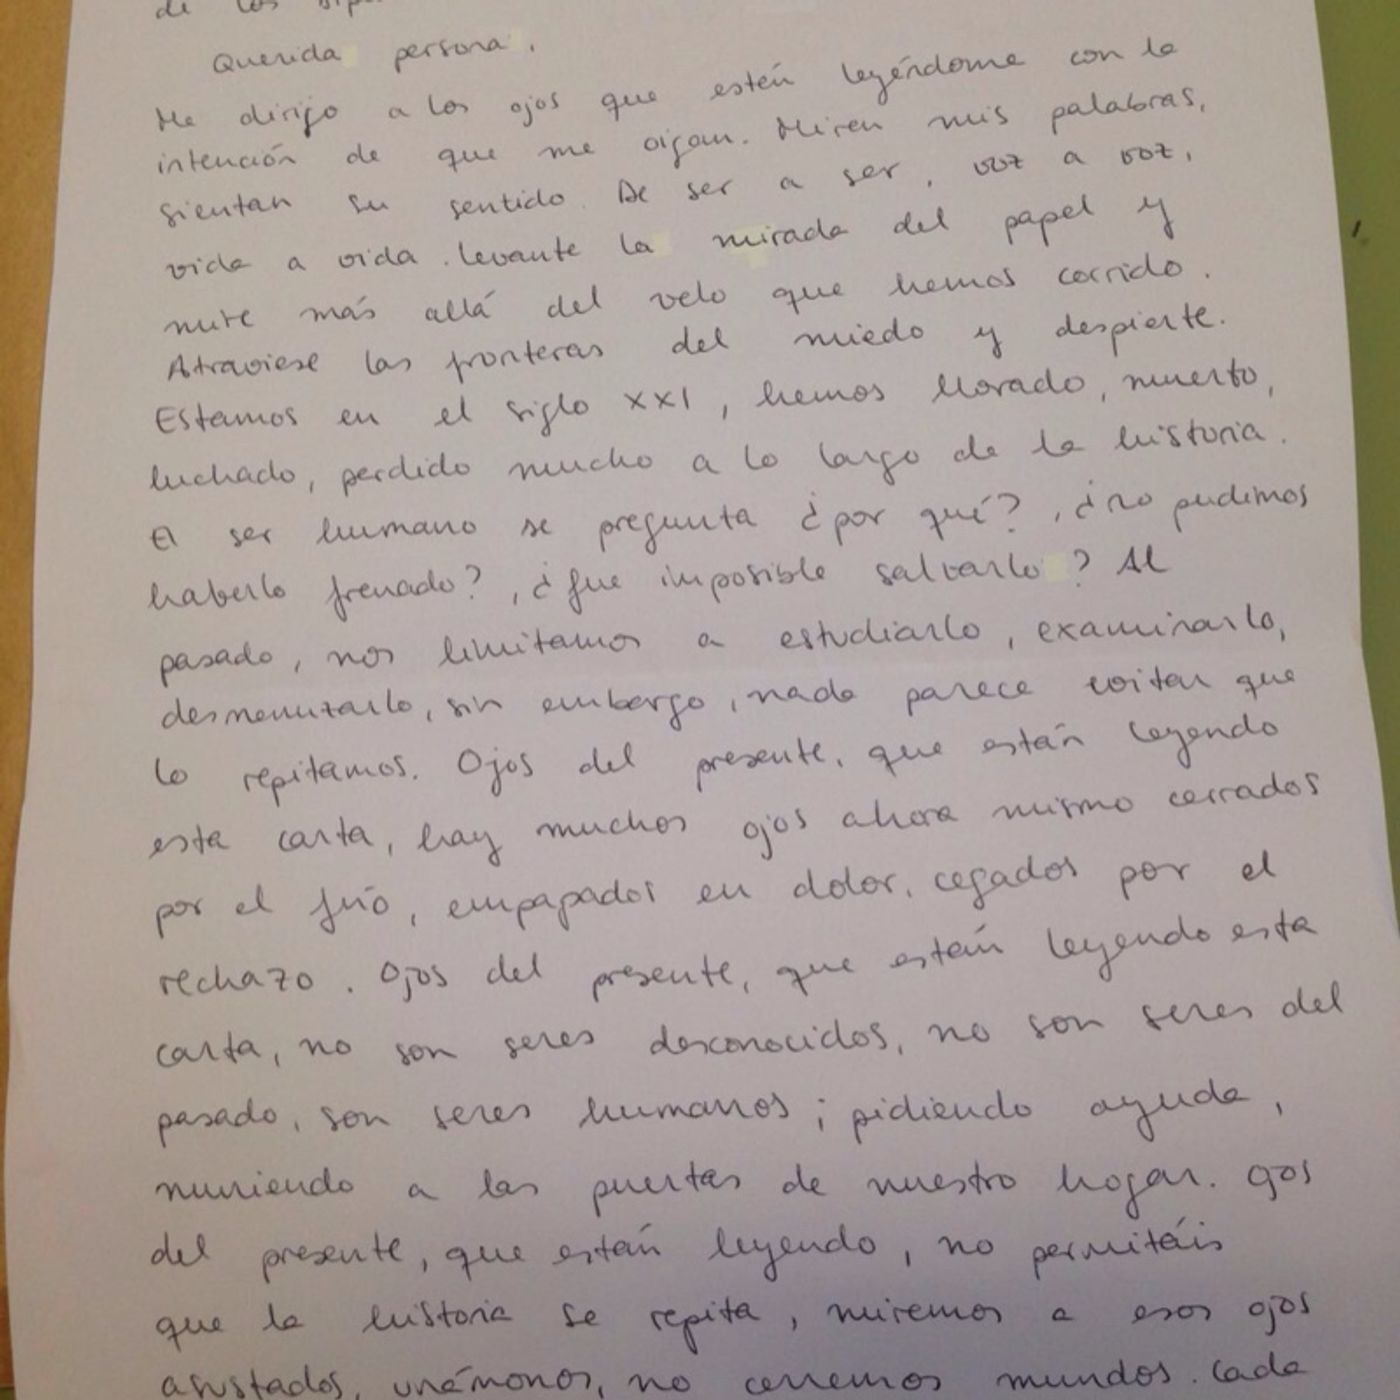 de los
Querida persona,
Me dirijo a los ojos que estén leyéndome con la
intención de que me oigan. Miren mis palabras,
sientan su sentido. De ser a ser, voz a voz,
vida a vida. Levante la mirada del papel y
mire más allá del velo que hemos corrido.
Atraviese las fronteras del miedo y despierte.
Estamos en el siglo XXI, hemos llorado, muerto,
luchado, perdido mucho a lo largo de la historia.
El ser humano se pregunta ¿por qué?, ¿no pudimos
haberlo frenado?, ¿fue imposible salvarlo? Al
pasado, nos limitamos a estudiarlo, examinarlo,
desmenuzarlo, sin embargo, nada parece evitar que
lo repitamos. Ojos del presente, que están leyendo
esta carta, hay muchos ojos ahora mismo cerrados
por el frío, empapados en dolor, cegados por el
rechazo. Ojos del presente, que están leyendo esta
carta, no son seres desconocidos, no son seres del
pasado, son seres humanos; pidiendo ayuda,
muriendo a las puertas de nuestro hogar. Ojos
del presente, que están leyendo, no permitáis
que la historia se repita, miremos a esos ojos
asustados, unámonos, no cerremos mundos. Cada